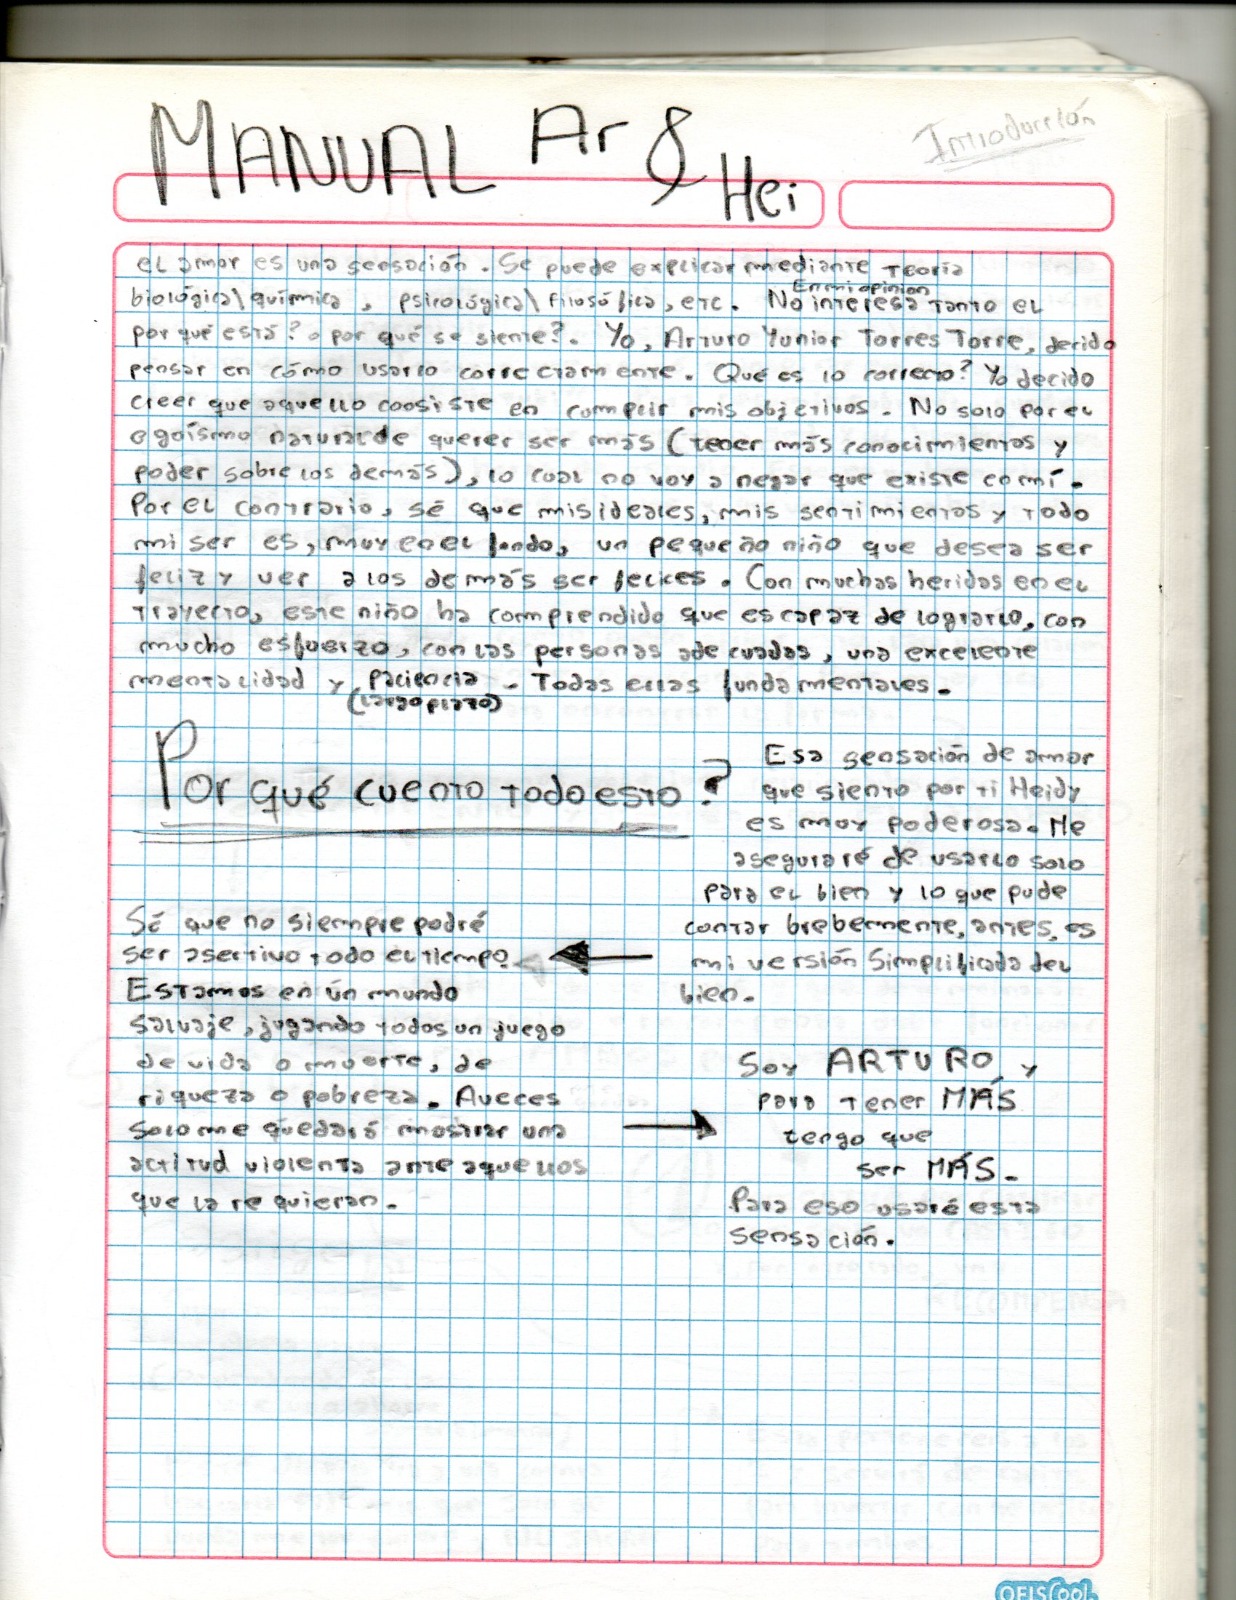 MANUAL Ar & Hei
Introducción
el amor es una sensación. Se puede explicar mediante teoría
biológica\química, psicológica\filosófica, etc. En mi opinion No interesa tanto el
por qué está? o por qué se siente?. Yo, Arturo Yunior Torres Torre, decido
pensar en cómo usarlo correctamente. Qué es lo correcto? Yo decido
creer que aquello consiste en cumplir mis objetivos. No solo por el
egoísmo natural de querer ser más (tener más conocimientos y
poder sobre los demás), lo cual no voy a negar que existe en mí.
Por el contrario, sé que mis ideales, mis sentimientos y todo
mi ser es, muy en el fondo, un pequeño niño que desea ser
feliz y ver a los demás ser felices. Con muchas heridas en el
trayecto, este niño ha comprendido que es capaz de lograrlo, con
mucho esfuerzo, con las personas adecuadas, una excelente
mentalidad y paciencia. Todas ellas fundamentales.
(largo plazo)
Por qué cuento todo esto?
Esa sensación de amor
que siento por ti Heidy
es muy poderosa. Me
aseguraré de usarlo solo
para el bien y lo que pude
contar brebemente, antes, es
mi versión simplificada del
bien.
Sé que no siempre podré
ser asertivo todo el tiempo.
Estamos en un mundo
salvaje, jugando todos un juego
de vida o muerte, de
riqueza o pobreza. Aveces
solo me quedará mostrar una
actitud violenta ante aquellos
que la requieran.
Soy ARTURO, y
para tener MÁS
tengo que
ser MÁS.
Para eso usaré esta
sensación.
OFISCOOL